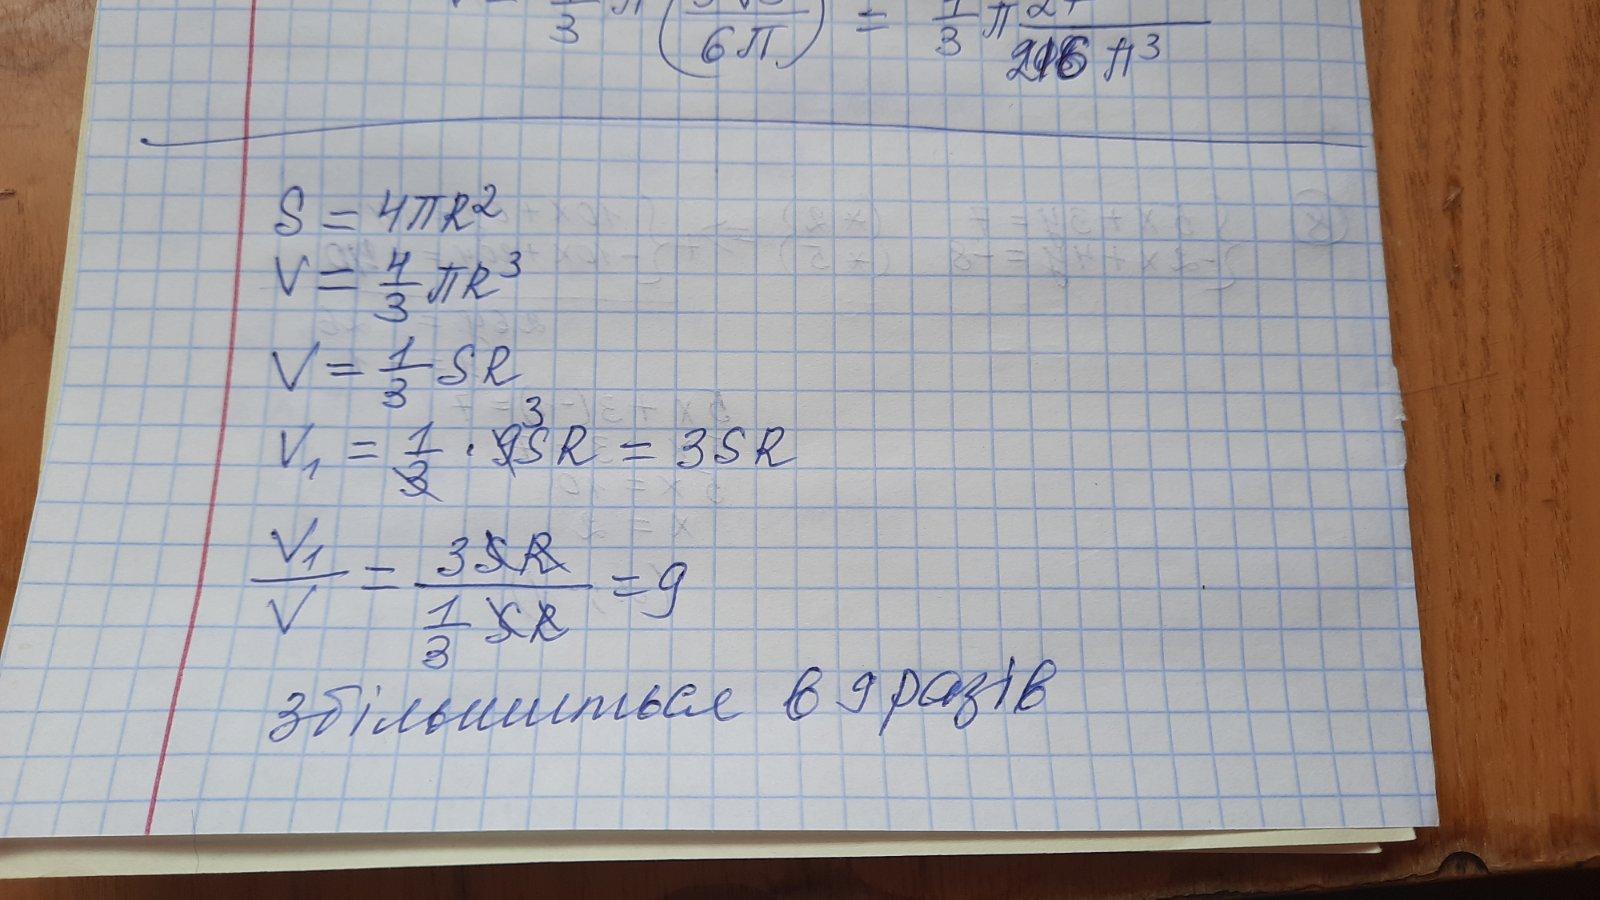 = 1/3 π ( /6π) = 1/3 π /216 π³
S = 4πR²
V = 4/3 πR³
V = 1/3 SR
V₁ = 1/3 · 9³SR = 3SR
V₁/V = 3SR / 1/3 SR = 9
збільшиться в 9 разів